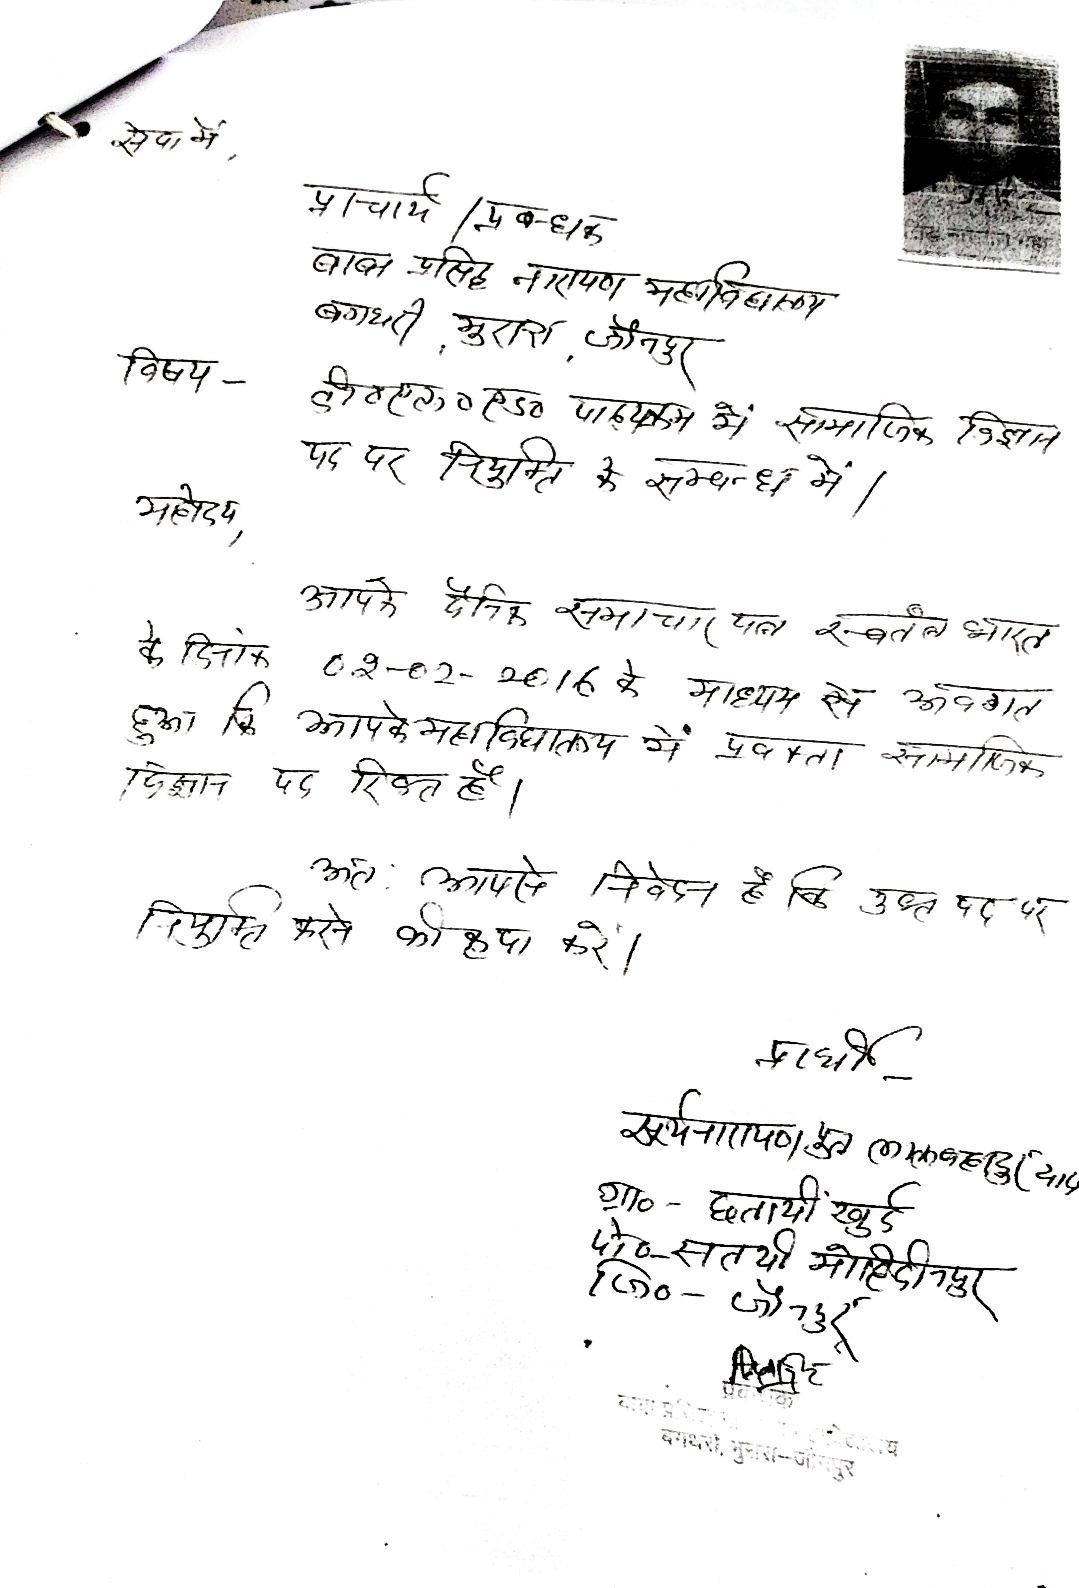 सेवा में,
प्राचार्य / प्रबन्धक
बाबा प्रसिद्ध नारायण महाविद्यालय
बगथरी, मुरारा, जौनपुर
विषय - डी०एल०एड० पाठ्यक्रम में सामाजिक विज्ञान
पद पर नियुक्ति के सम्बन्ध में।
महोदय,
आपके दैनिक समाचार पत्र स्वतंत्र भारत
के दिनांक 02-02-2016 के माध्यम से अवगत
हुआ कि आपके महाविद्यालय में प्रवक्ता सामाजिक
विज्ञान पद रिक्त है।
अतः आपसे निवेदन है कि उक्त पद पर
नियुक्ति करने की कृपा करें।
प्रार्थी -
सूर्यनारायण पुत्र लालबहादुर
ग्रा० - छतायीं खुर्द
पो० - सतयी मोहिदीनपुर
जि० - जौनपुर
प्रबन्धक
बगथरी, मुरारा-जौनपुर